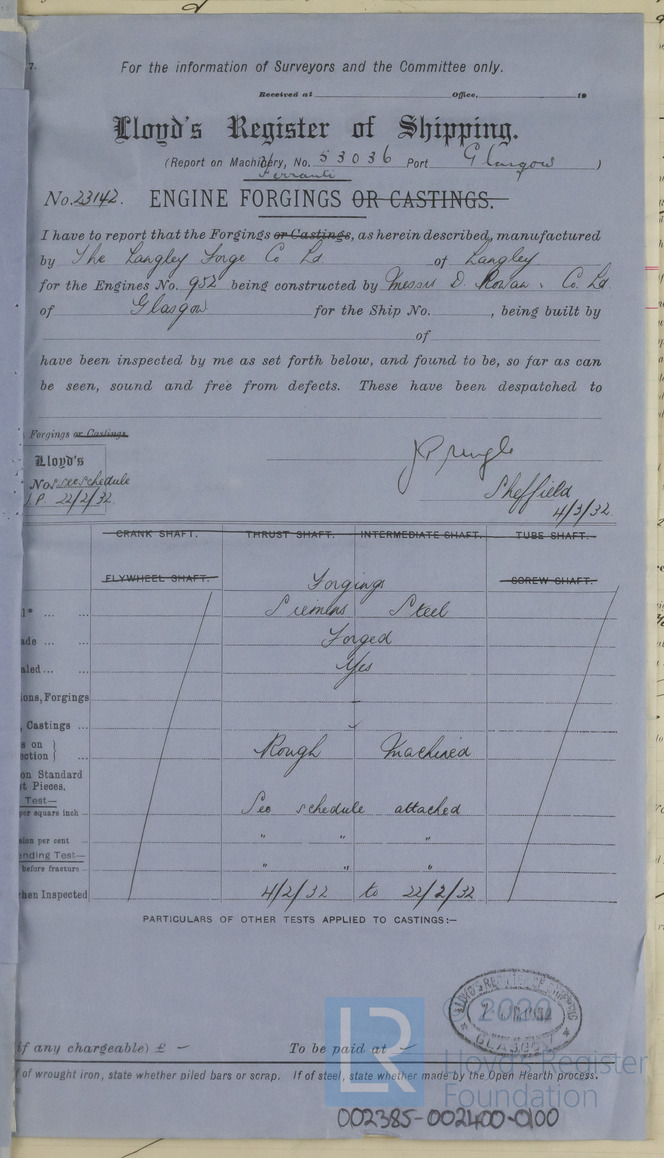 7.
For the information of Surveyors and the Committee only.
Received at Office, 19
Lloyd's Register of Shipping.
(Report on Machinery, No. 53036 Port Glasgow )
No. 23142. ENGINE FORGINGS OR CASTINGS.
I have to report that the Forgings or Castings, as herein described, manufactured
by The Langley Forge Co Ld of Langley
for the Engines No. 952 being constructed by Messrs D. Rowan & Co. Ld
of Glasgow for the Ship No. , being built by
of
have been inspected by me as set forth below, and found to be, so far as can
be seen, sound and free from defects. These have been despatched to
Forgings or Castings
Lloyd's
Nos see schedule
J.P. 22/2/32
J Pringle
Sheffield
4/3/32
CRANK SHAFT. THRUST SHAFT. INTERMEDIATE SHAFT. TUBE SHAFT.
FLYWHEEL SHAFT. Forgings SCREW SHAFT.
Siemens Steel
Forged
Yes
ions, Forgings
, Castings ...
s on
ction ... Rough Machined
on Standard
t Pieces.
Test—
per square inch — See schedule attached
sion per cent " " "
ending Test—
before fracture — " " "
hen Inspected 4/2/32 to 22/2/32
PARTICULARS OF OTHER TESTS APPLIED TO CASTINGS:—
LLOYD'S REGISTER OF SHIPPING
GLASGOW
if any chargeable) £ – To be paid at –
of wrought iron, state whether piled bars or scrap. If of steel, state whether made by the Open Hearth process.
LR
Lloyd's Register
Foundation
002385-002400-0100